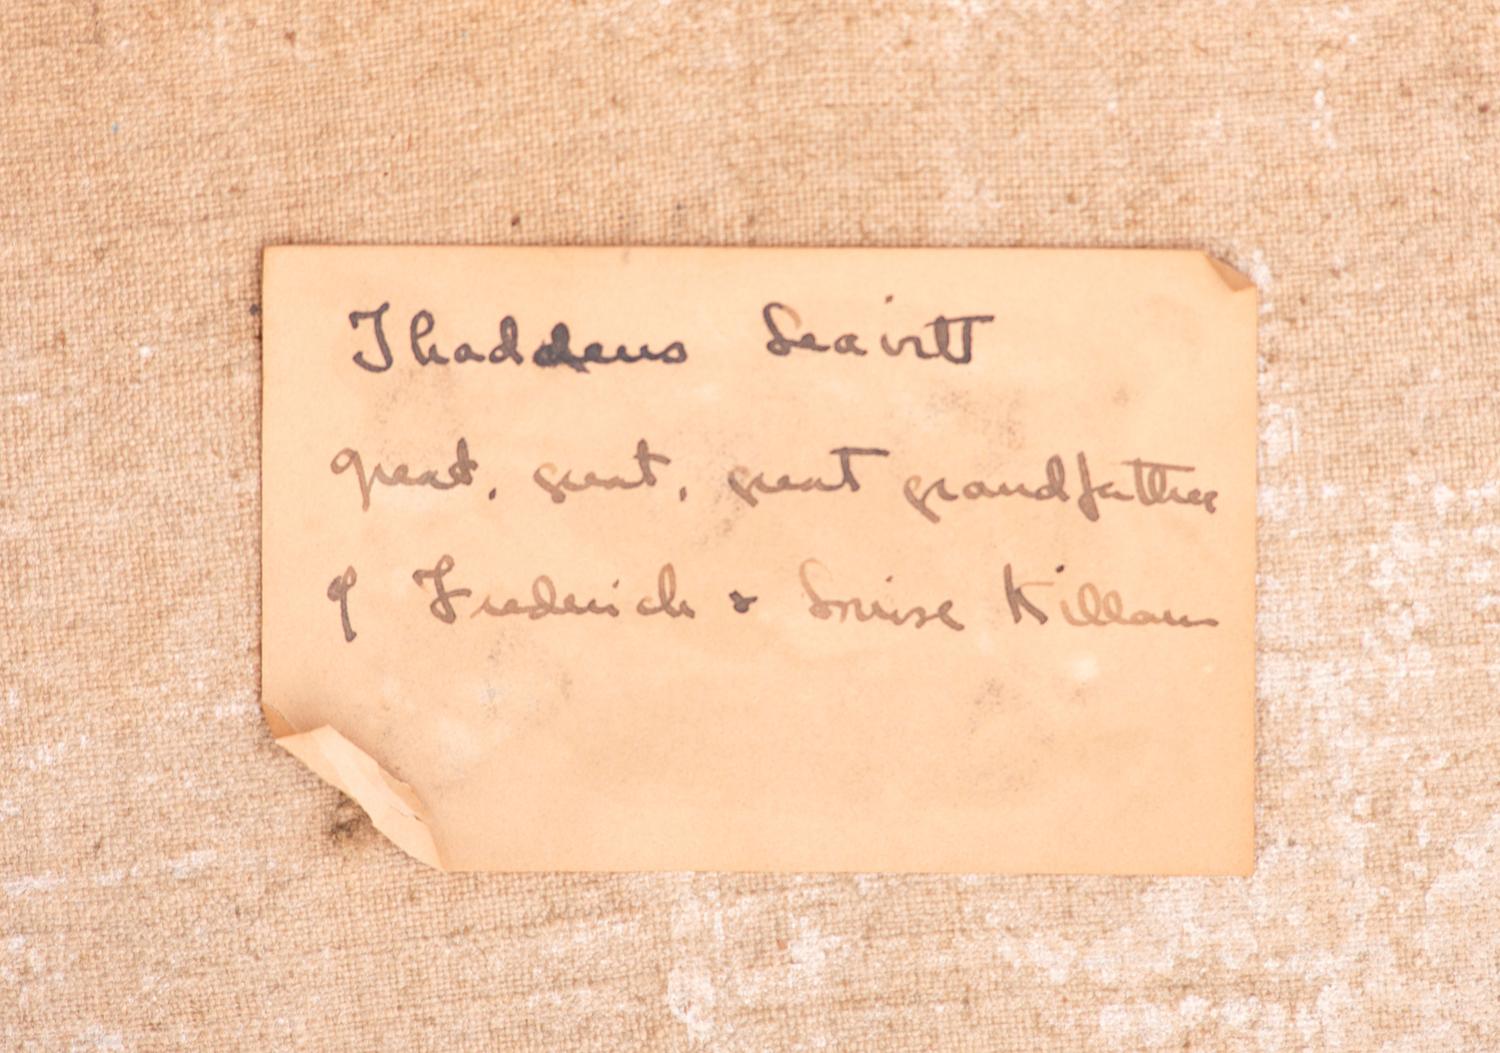 Thaddeus Leavitt
great, great, great grandfather
of Frederick & Louise Killam